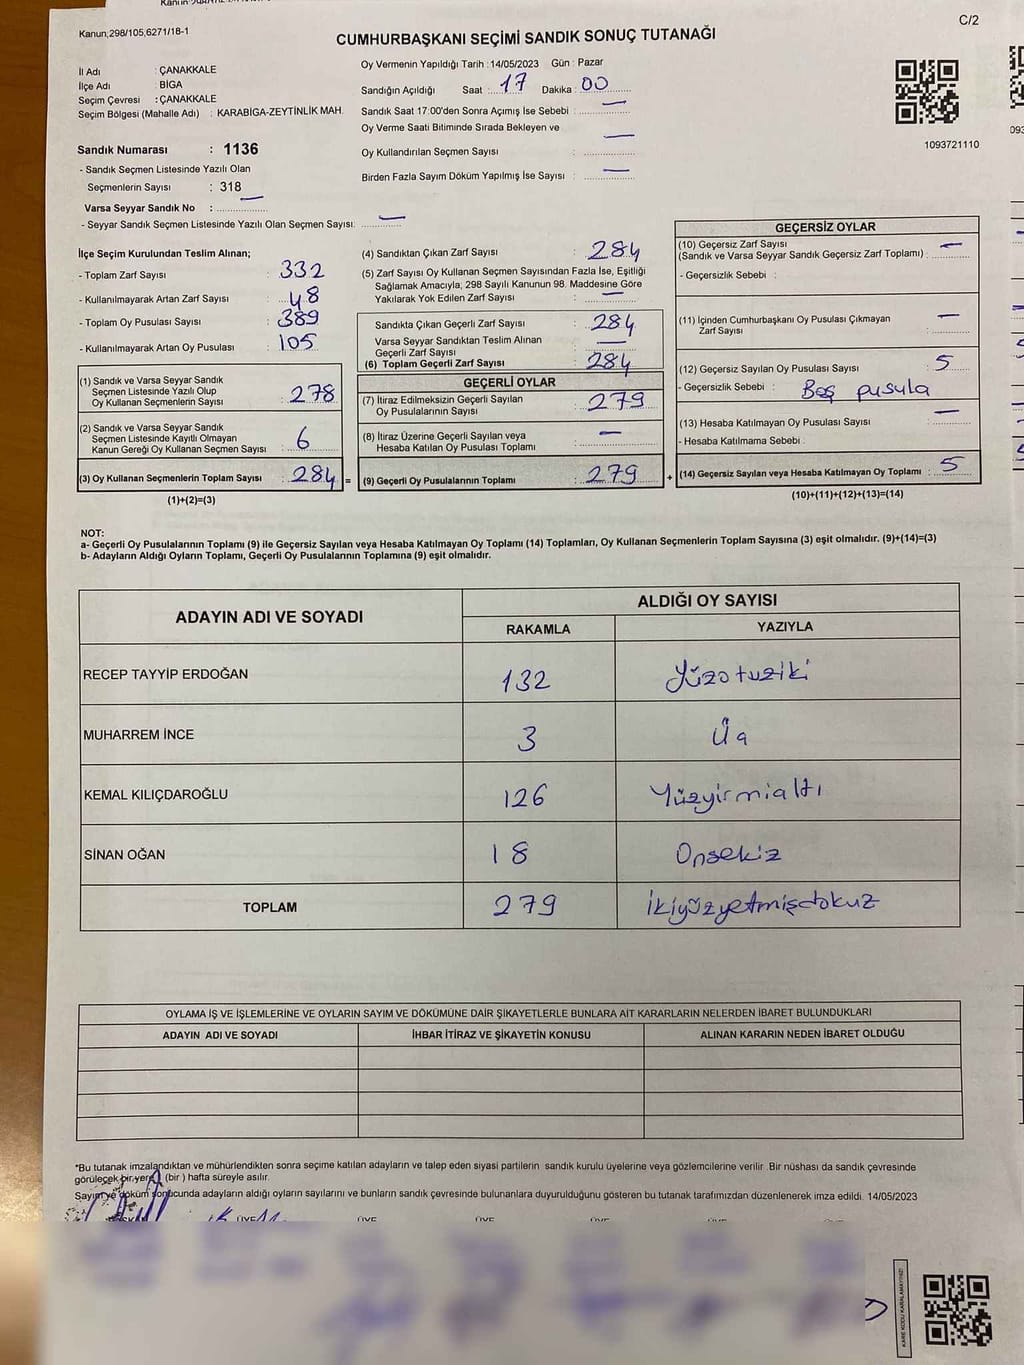 Kanun;298/105,6271/18-1
C/2
CUMHURBAŞKANI SEÇİMİ SANDIK SONUÇ TUTANAĞI
İl Adı : ÇANAKKALE
İlçe Adı : BİGA
Seçim Çevresi : ÇANAKKALE
Seçim Bölgesi (Mahalle Adı) : KARABİGA-ZEYTİNLİK MAH.
Sandık Numarası : 1136
- Sandık Seçmen Listesinde Yazılı Olan
Seçmenlerin Sayısı : 318
Varsa Seyyar Sandık No : —
- Seyyar Sandık Seçmen Listesinde Yazılı Olan Seçmen Sayısı: —
Oy Vermenin Yapıldığı Tarih : 14/05/2023 Gün : Pazar
Sandığın Açıldığı Saat : 17 Dakika : 00
Sandık Saat 17:00'den Sonra Açımış İse Sebebi : —
Oy Verme Saati Bitiminde Sırada Bekleyen ve —
Oy Kullandırılan Seçmen Sayısı :
Birden Fazla Sayım Döküm Yapılmış İse Sayısı : —
1093721110
İlçe Seçim Kurulundan Teslim Alınan;
- Toplam Zarf Sayısı : 332
- Kullanılmayarak Artan Zarf Sayısı : 48
- Toplam Oy Pusulası Sayısı : 389
- Kullanılmayarak Artan Oy Pusulası : 105
(1) Sandık ve Varsa Seyyar Sandık
Seçmen Listesinde Yazılı Olup
Oy Kullanan Seçmenlerin Sayısı : 278
(2) Sandık ve Varsa Seyyar Sandık
Seçmen Listesinde Kayıtlı Olmayan
Kanun Gereği Oy Kullanan Seçmen Sayısı : 6
(3) Oy Kullanan Seçmenlerin Toplam Sayısı : 284 =
(1)+(2)=(3)
(4) Sandıktan Çıkan Zarf Sayısı : 284
(5) Zarf Sayısı Oy Kullanan Seçmen Sayısından Fazla İse, Eşitliği
Sağlamak Amacıyla; 298 Sayılı Kanunun 98. Maddesine Göre
Yakılarak Yok Edilen Zarf Sayısı : —
Sandıkta Çıkan Geçerli Zarf Sayısı : 284
Varsa Seyyar Sandıktan Teslim Alınan
Geçerli Zarf Sayısı : —
(6) Toplam Geçerli Zarf Sayısı : 284
GEÇERLİ OYLAR
(7) İtiraz Edilmeksizin Geçerli Sayılan
Oy Pusulalarının Sayısı : 279
(8) İtiraz Üzerine Geçerli Sayılan veya
Hesaba Katılan Oy Pusulası Toplamı : —
(9) Geçerli Oy Pusulalarının Toplamı : 279 +
GEÇERSİZ OYLAR
(10) Geçersiz Zarf Sayısı
(Sandık ve Varsa Seyyar Sandık Geçersiz Zarf Toplamı) : —
- Geçersizlik Sebebi :
(11) İçinden Cumhurbaşkanı Oy Pusulası Çıkmayan
Zarf Sayısı : —
(12) Geçersiz Sayılan Oy Pusulası Sayısı : 5
- Geçersizlik Sebebi : Boş pusula
(13) Hesaba Katılmayan Oy Pusulası Sayısı : —
- Hesaba Katılmama Sebebi :
(14) Geçersiz Sayılan veya Hesaba Katılmayan Oy Toplamı : 5
(10)+(11)+(12)+(13)=(14)
NOT:
a- Geçerli Oy Pusulalarının Toplamı (9) ile Geçersiz Sayılan veya Hesaba Katılmayan Oy Toplamı (14) Toplamları, Oy Kullanan Seçmenlerin Toplam Sayısına (3) eşit olmalıdır. (9)+(14)=(3)
b- Adayların Aldığı Oyların Toplamı, Geçerli Oy Pusulalarının Toplamına (9) eşit olmalıdır.
ADAYIN ADI VE SOYADI
ALDIĞI OY SAYISI
RAKAMLA YAZIYLA
RECEP TAYYİP ERDOĞAN 132 Yüzotuziki
MUHARREM İNCE 3 Üç
KEMAL KILIÇDAROĞLU 126 Yüzyirmialtı
SİNAN OĞAN 18 Onsekiz
TOPLAM 279 İkiyüzyetmişdokuz
OYLAMA İŞ VE İŞLEMLERİNE VE OYLARIN SAYIM VE DÖKÜMÜNE DAİR ŞİKAYETLERLE BUNLARA AİT KARARLARIN NELERDEN İBARET BULUNDUKLARI
ADAYIN ADI VE SOYADI İHBAR İTİRAZ VE ŞİKAYETİN KONUSU ALINAN KARARIN NEDEN İBARET OLDUĞU
*Bu tutanak imzalandıktan ve mühürlendikten sonra seçime katılan adayların ve talep eden siyasi partilerin sandık kurulu üyelerine veya gözlemcilerine verilir .Bir nüshası da sandık çevresinde
görülecek bir yere (bir ) hafta süreyle asılır.
Sayım ve döküm sonucunda adayların aldığı oyların sayılarını ve bunların sandık çevresinde bulunanlara duyurulduğunu gösteren bu tutanak tarafımızdan düzenlenerek imza edildi. 14/05/2023
ÜYE ÜYE ÜYE ÜYE ÜYE ÜYE
KARE KODU KARALAMAYINIZ!